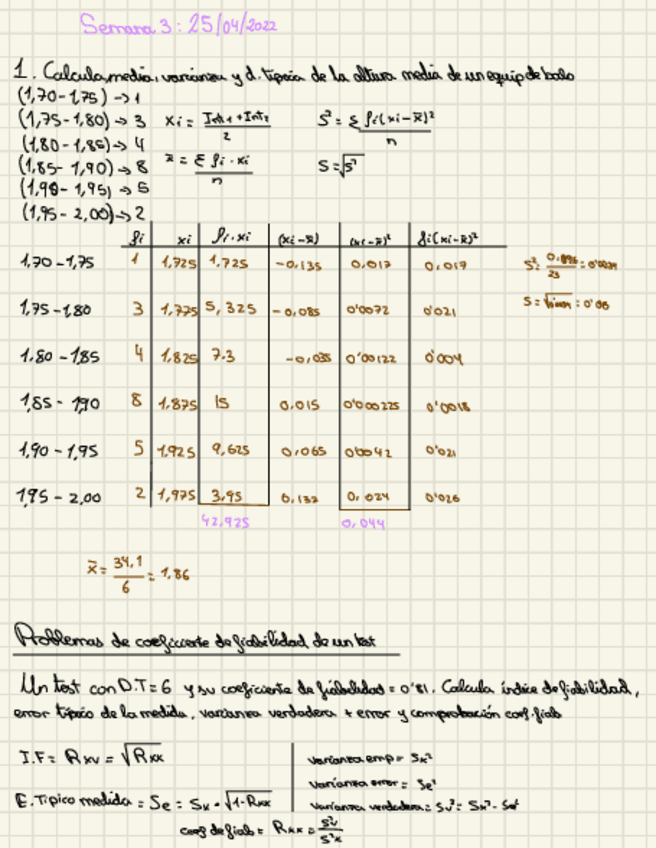 Semana 3: 25/04/2022
1. Calcula media, varianza y d. típica de la altura media de un equip de balo
(1,70-1,75) → 1
(1,75-1,80) → 3 xi = Int1+Int2 / 2 S² = Σ fi(xi-x̄)² / n
(1,80-1,85) → 4
(1,85-1,90) → 8 x̄ = Σ fi·xi / n S = √S²
(1,90-1,95) → 5
(1,95-2,00) → 2
fi xi fi·xi (xi-x̄) (xi-x̄)² fi(xi-x̄)²
1,70-1,75 1 1,725 1,725 -0,135 0,017 0,017 S² = / 23
1,75-1,80 3 1,775 5,325 -0,085 0'0072 0'021 S = = 0'06
1,80-1,85 4 1,825 7.3 -0,035 0'00122 0'004
1,85-1,90 8 1,875 15 0,015 0'000225 0'0018
1,90-1,95 5 1,925 9,625 0,065 0'0042 0'021
1,95-2,00 2 1,975 3,95 0,132 0,024 0'026
42,925 0,044
x̄ = 34,1 / 6 = 1,86
Problemas de coeficiente de fiabilidad de un test
Un test con D.T=6 y su coeficiente de fiabilidad = 0'81. Calcula índice de fiabilidad,
error típico de la medida, varianza verdadera + error y comprobación coef. fiab
I.F = Rxv = √Rxx varianza emp = Sx²
varianza error = Se²
E. Típico medida = Se = Sx · √1-Rxx varianza verdadera = Sv² = Sx² - Se²
coef de fiab = Rxx = S²v / S²x